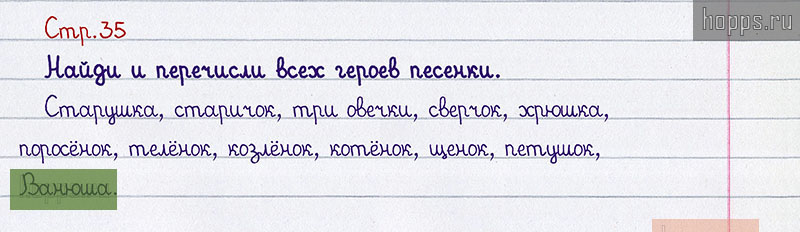 hopps.ru
Стр.35
Найди и перечисли всех героев песенки.
Старушка, старичок, три овечки, сверчок, хрюшка,
поросёнок, телёнок, козлёнок, котёнок, щенок, петушок,
Ванюша.